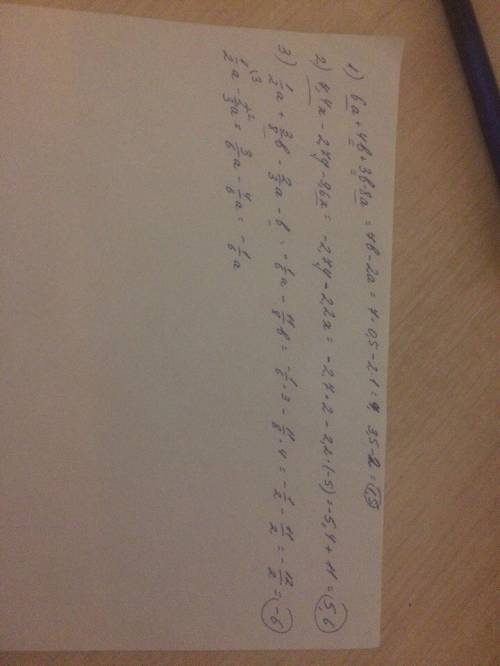 1) 6a + 4b + 3b - 8a = 7b - 2a = 7·0,5 - 2·1 = 3,5 - 2 = 1,5
2) 1,4x - 2,7y - 3,6x = -2,7y - 2,2x = -2,7·2 - 2,2·(-5) = -5,4 + 11 = 5,6
3) 1/2 a + 3/8 b - 2/3 a - b = -1/6 a - 11/8 b = -1/6 · 3 - 11/8 · 4 = -1/2 - 11/2 = -12/2 = -6
1/2 \3 a - 2/3 \2 a = 3/6 a - 4/6 a = -1/6 a